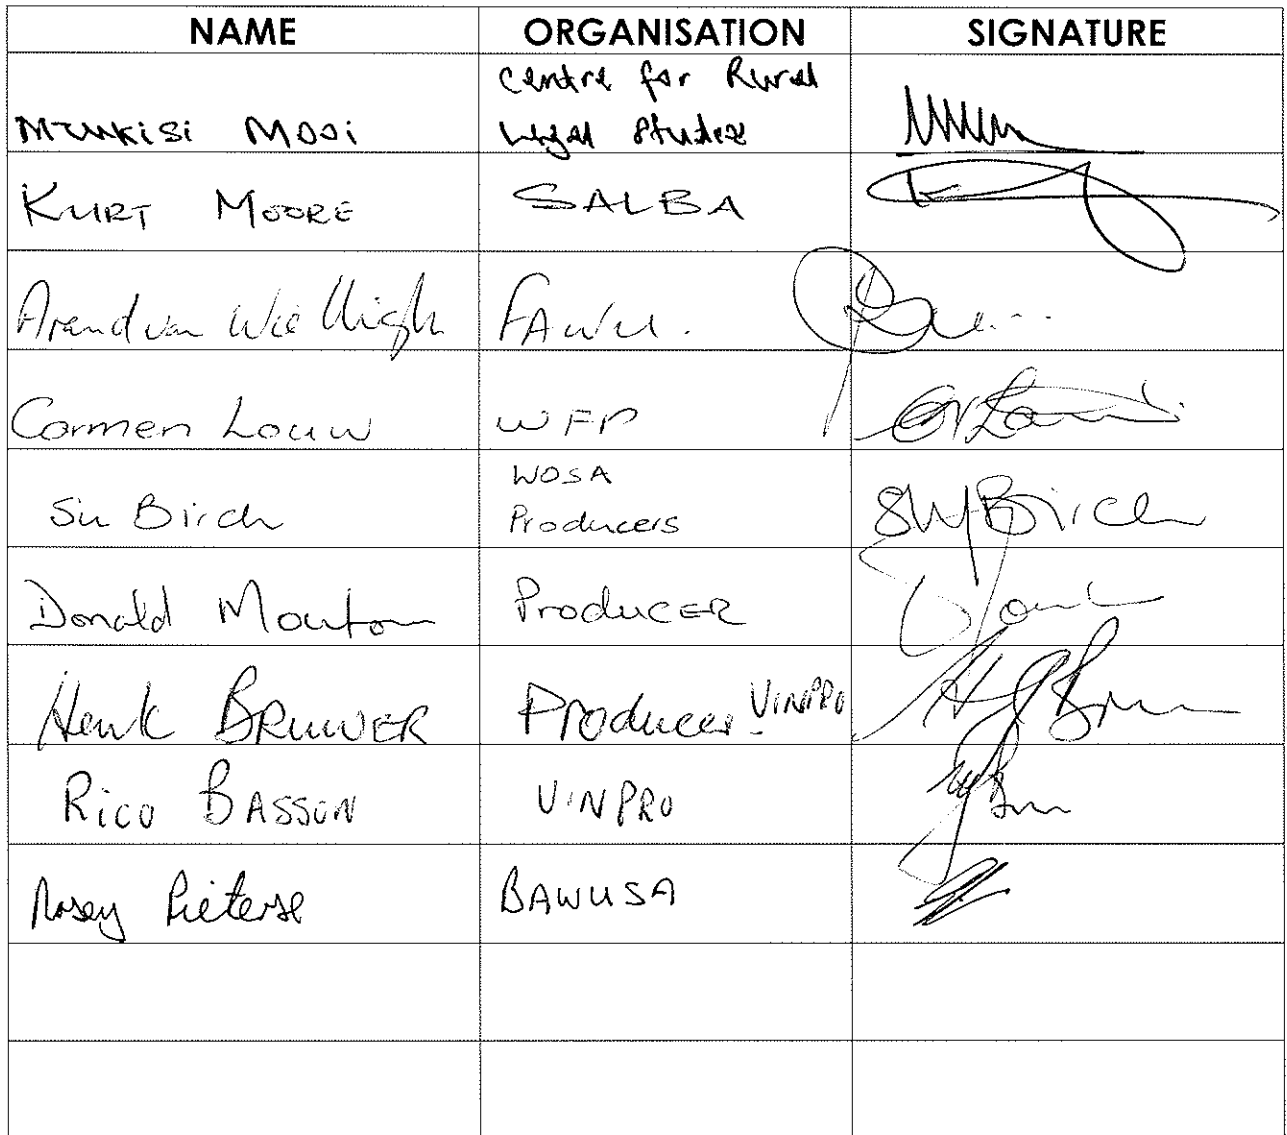 NAME ORGANISATION SIGNATURE
Centre for Rural
Mzukisi Mooi Legal Studies
KURT MOORE SALBA
Arend van Wielligh FAWU.
Carmen Louw WFP
WOSA
Su Birch Producers SW Birch
Donald Mouton PRODUCER
Henk BRUWER Producer. VINPRO
RICO BASSON VINPRO
Nosey Pieterse BAWUSA